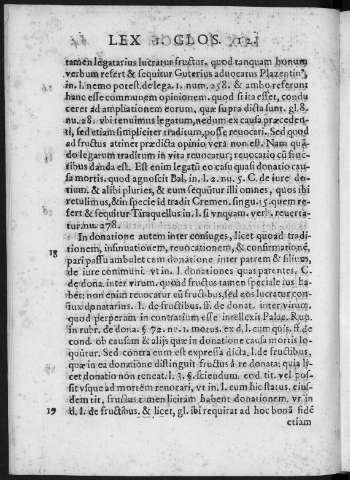 LEX ET GLOS. 12.
tamen legatarius lucratur fructus. quod tanquam bonum
verbum refert & sequitur Guterius aduocatus Plazentin⁹,
in. l. nemo potest. de lega. 1. num. 258. & ambo referunt
hanc esse communem opinionem. quod si ita esset, condu
ceret ad ampliationem eorum, quæ supra dicta sunt. gl. 8.
nu. 28. vbi tenuimus legatum, nedum ex causa præceden
ti, sed etiam simpliciter traditum, posse reuocari. Sed quod
ad fructus attinet prædicta opinio vera non est. Nam quã
do legatum traditum in vita reuocatur; reuocatio cũ fruc-
tibus danda est. Est enim legatũ eo casu quasi donatio cau
sa mortis. quod agnoscit Bal. in. l. 2. nu. 5. C. de iure de-
tium. & alibi pluries, & eum sequũtur illi omnes, quos ibi
retulimus, & in specie id tradit Cremen. singu. 15. quem re
fert & sequitur Tiraquellus in. l. si vnquam. verb. reuerta-
tur. nu. 278.
In donatione autem inter coniuges, licet quoad tradi-
18 tionem, insinuationem, reuocationem, & confirmationẽ,
pari passu ambulet cum donatione inter patrem & filium,
de iure communi vt in. l. donationes quas parentes, C.
de dona. inter virum. quoad fructos tamen speciale ius ha-
bet: non enim reuocatur cũ fructibus, sed eos lucratur con-
iux donatarius. l. de fructibus. ff. de donat. inter virum.
quod perperam in contrarium esse intellexit Palac. Rup.
in rubr. de dona. § 72. nu. 1. motus. ex d. l. cum quis. ff. de
cond. ob causam & alijs quæ in donatione causa mortis lo-
quũtur. Sed contra eum est expressa dicta. l. de fructibus,
quæ in ea donatione distinguit fructus à re donata; quia li-
cet donatio non teneat. l. 3. §. sciendum. eod. tit. vel pos-
sit vsque ad mortem reuocari, vt in. l. cum hic status. eius-
dem tit, fructus tamen licitam habent donationem. vt in
19 d. l. de fructibus. & licet, gl. ibi requirat ad hoc bonã fidẽ
etiam